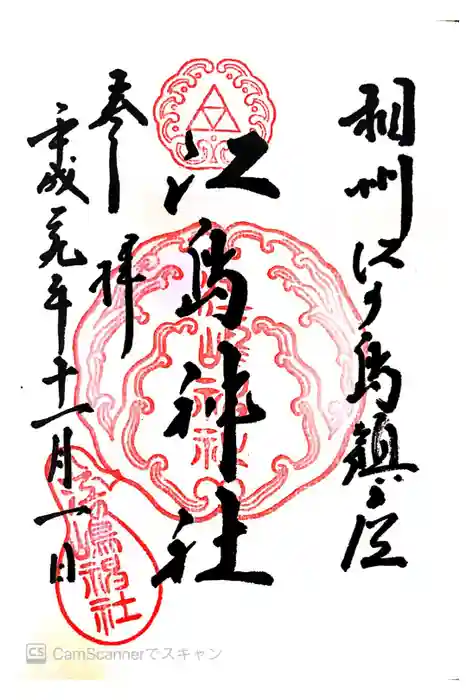 相州江の島鎮座
江島神社
奉拝
平成二九年十一月一日
江嶋神社
CS CamScannerでスキャン